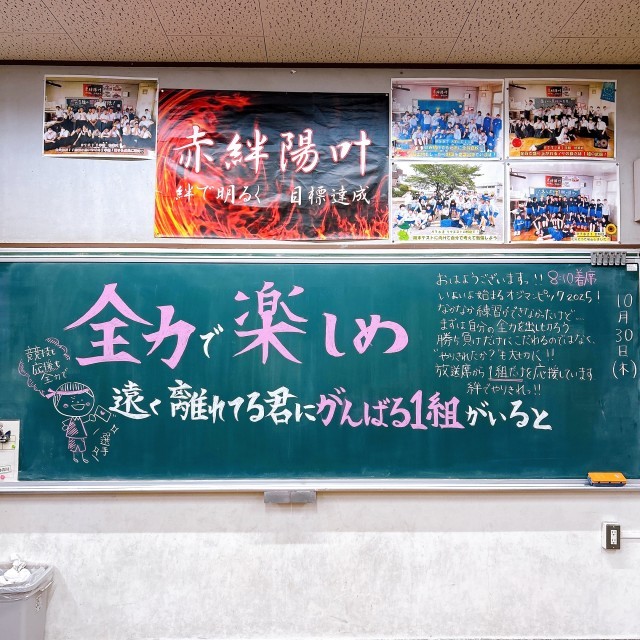 赤絆陽叶
絆で明るく 目標達成
全力で楽しめ
遠く離れてる君にがんばる1組がいると
競技も
応援も
全力で
選手
おはようございます。!! 8:10着席
いよいよ始まるオジマーピック2025!
なかなか練習ができなかったけど…
まずは自分の全力を出しきろう
勝ち負けだけにこだわるのではなく、
"やりきれたか?"も大切に!!
放送席から1組だけを応援しています
絆でやりきれっ!!
10月30日(木)